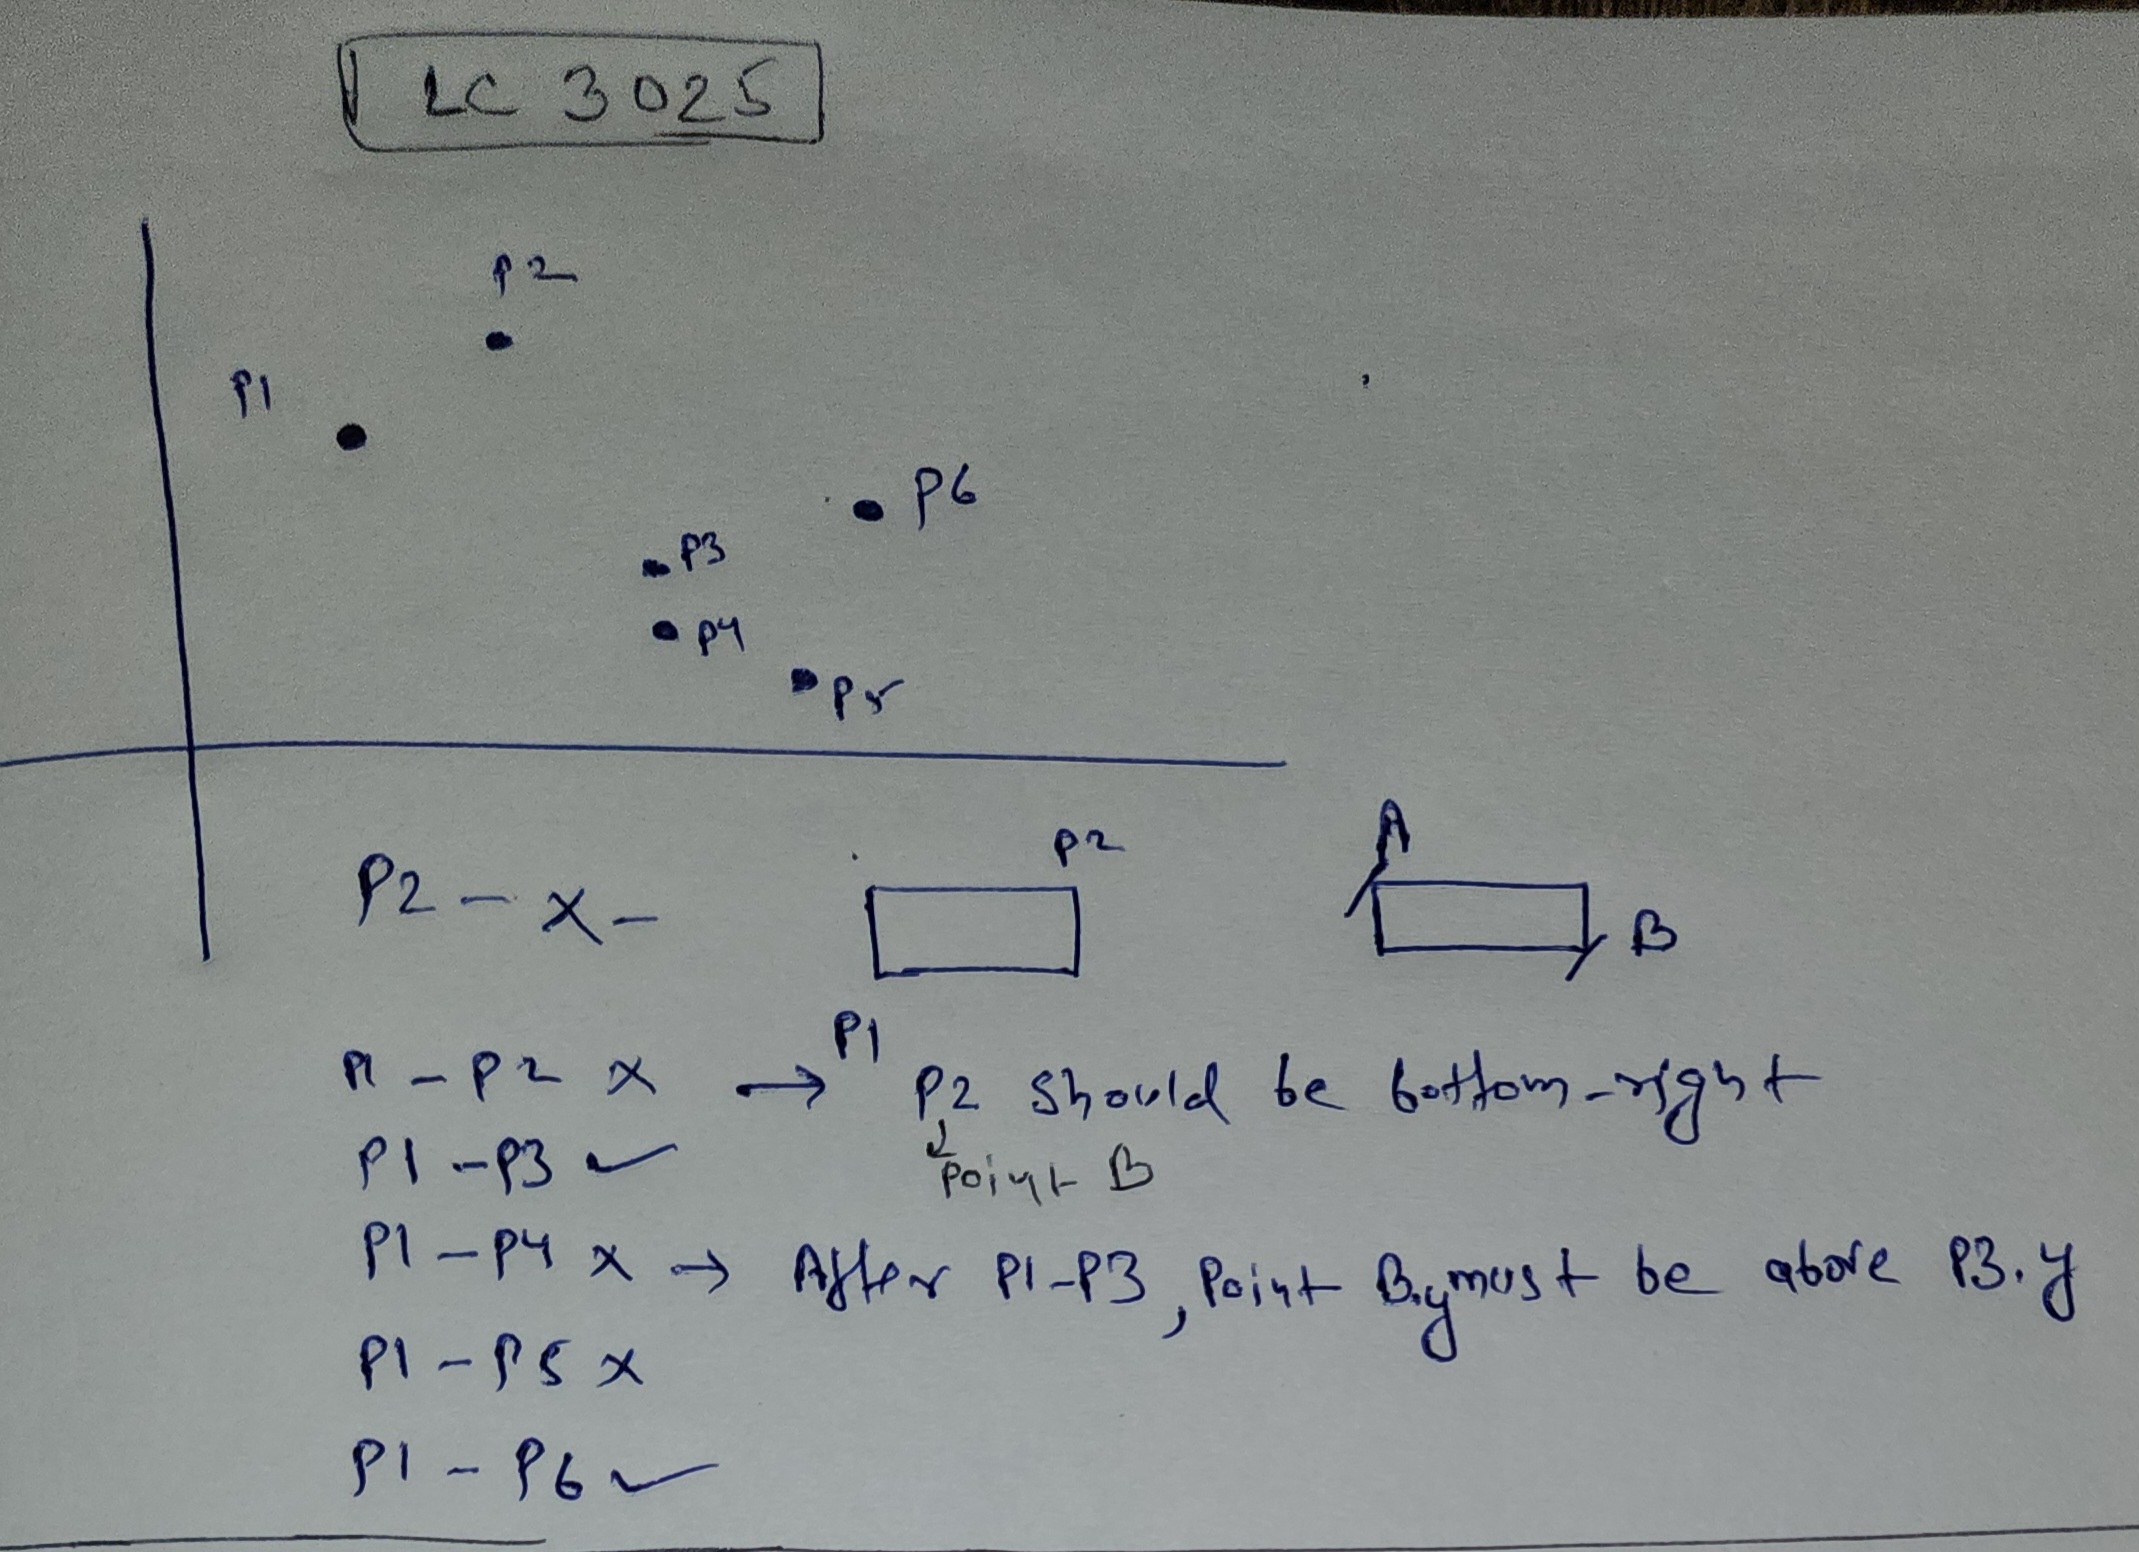 LC 3025
P2
P1
P6
P3
P4
P5
P2 - x -
P2
A
B
P1
P1 - P2 x → P2 should be bottom-right
P1 - P3 ✓
Point B
P1 - P4 x → After P1-P3, Point B.y must be above P3.y
P1 - P5 x
P1 - P6 ✓